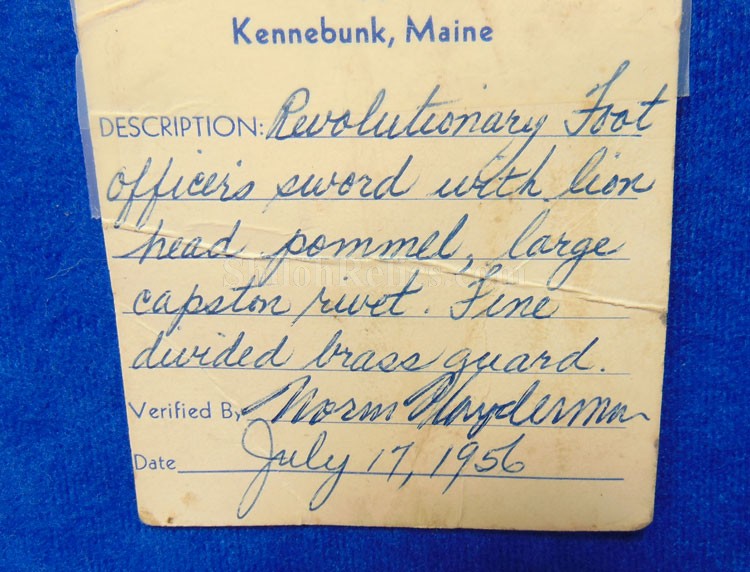 Kennebunk, Maine
DESCRIPTION: Revolutionary Foot
officer's sword with lion
head pommel, large
ShilohRelics.com
capston rivet. Fine
divided brass guard.
Verified By Norm Flayderman
Date July 17, 1956